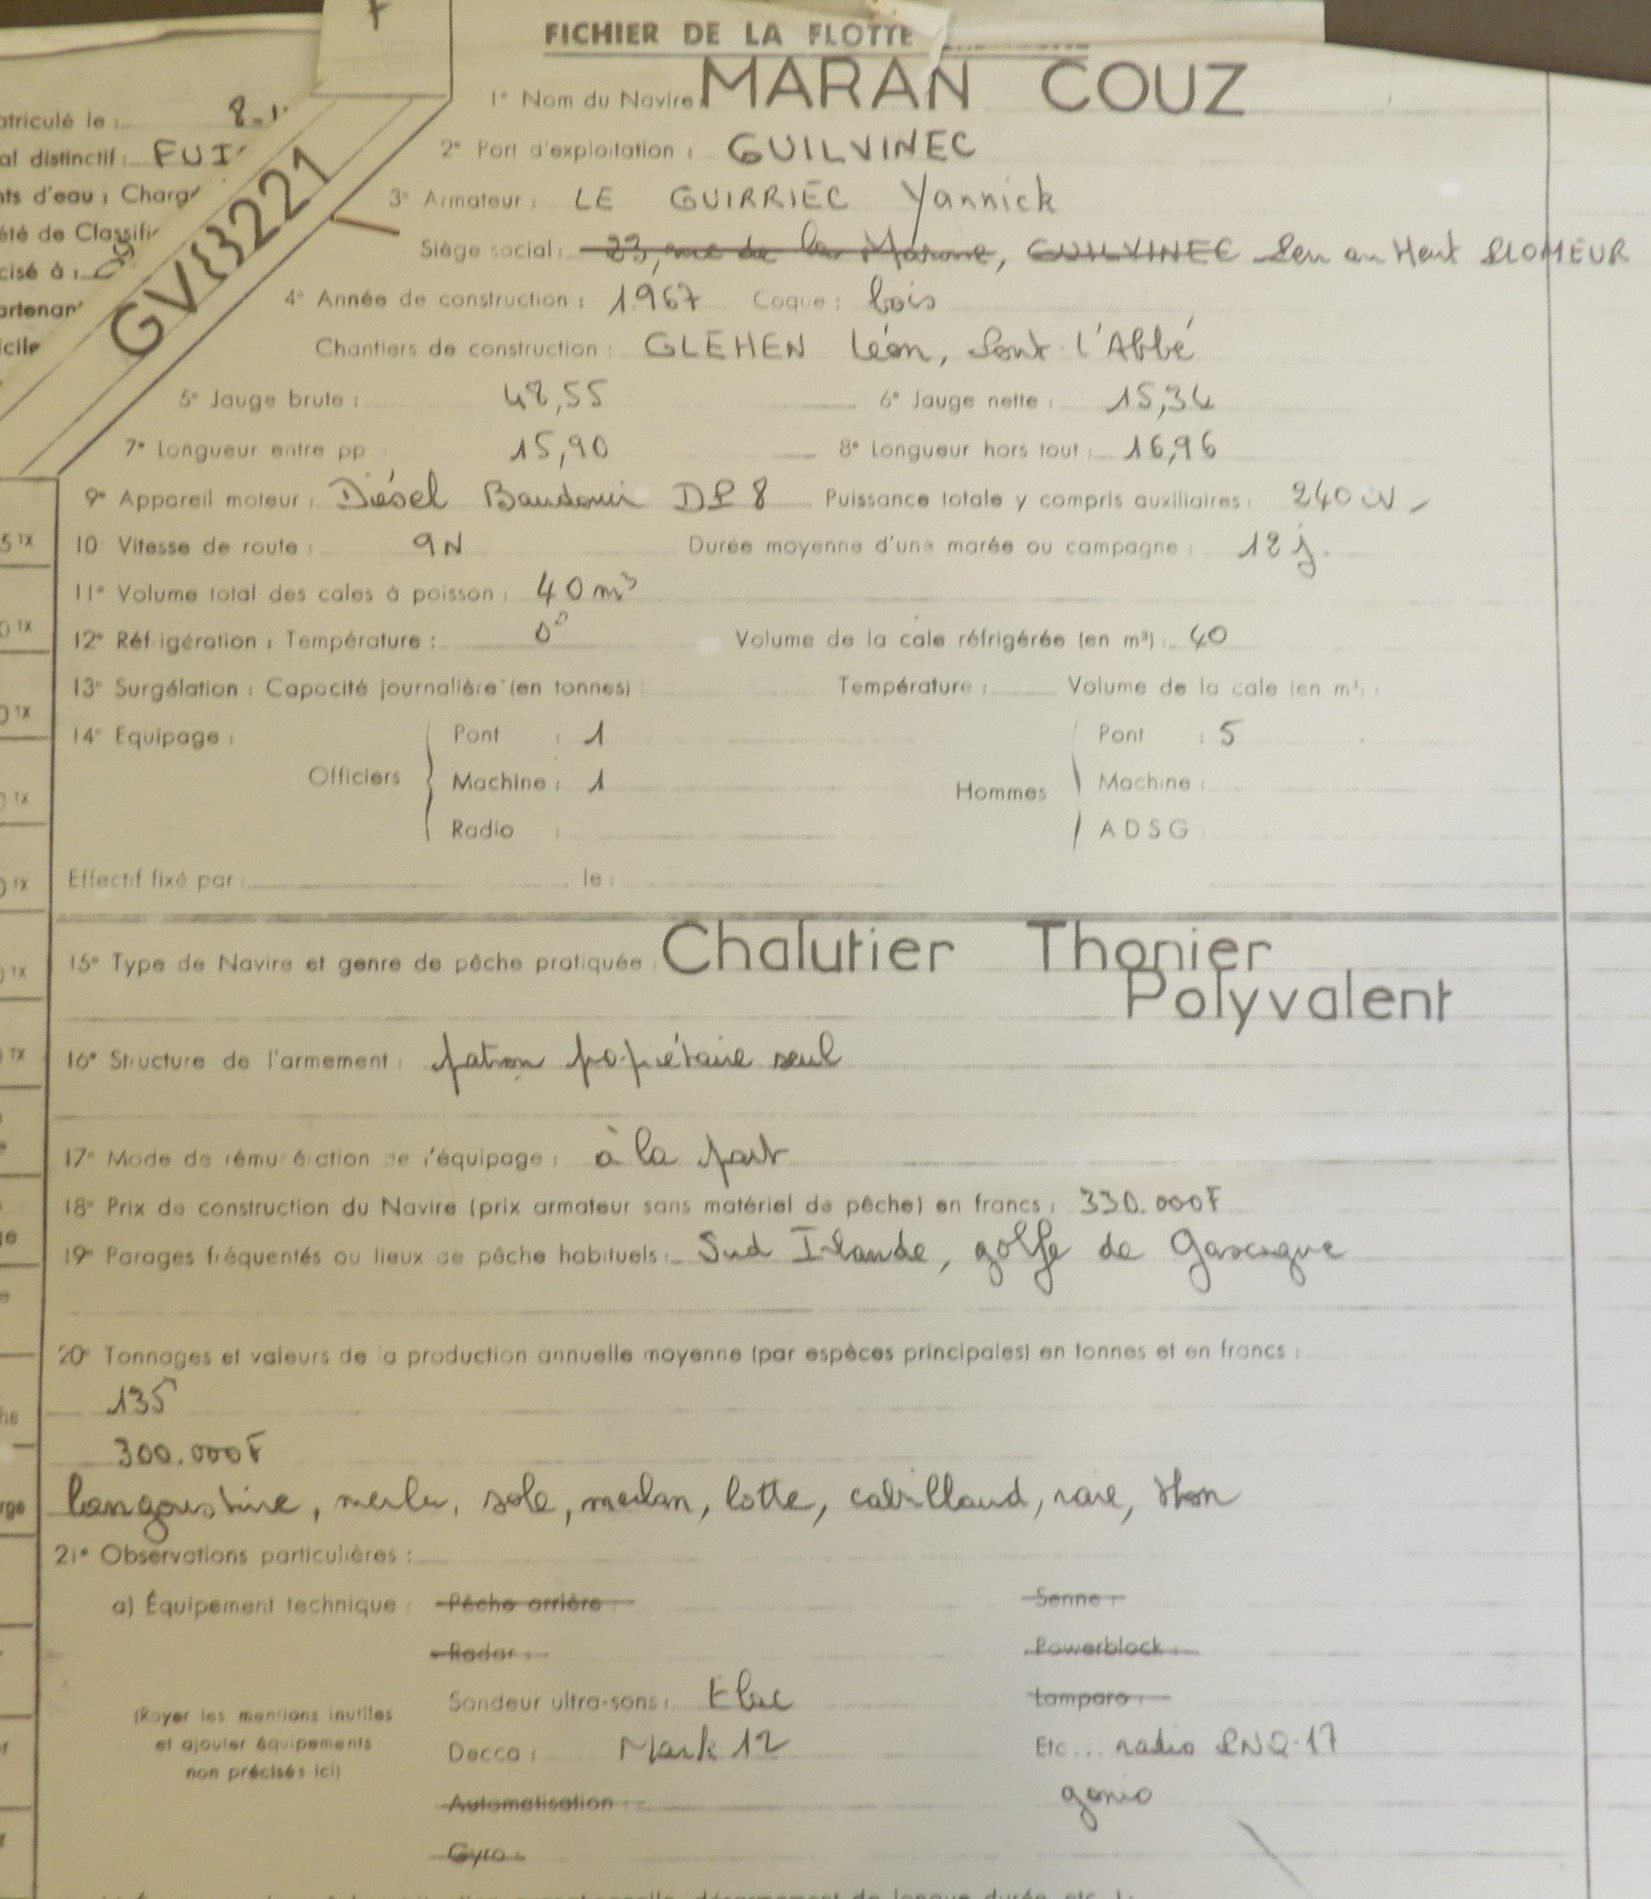 FICHIER DE LA FLOTTE
1° Nom du Navire MARAN COUZ
2° Port d'exploitation : GUILVINEC
3° Armateur : LE GUIRRIEC Yannick
Siège social : 23, rue de la Marine, GUILVINEC Pen an Hent PLOMEUR
4° Année de construction : 1967 Coque : bois
Chantiers de construction : GLEHEN Léon, Pont l'Abbé
5° Jauge brute : 48,55 6° Jauge nette : 15,34
7° Longueur entre pp 15,90 8° Longueur hors tout : 16,96
9° Appareil moteur : Diésel Baudouin DP 8 Puissance totale y compris auxiliaires : 240 CV
10 Vitesse de route : 9 N Durée moyenne d'une marée ou campagne : 12 j.
11° Volume total des cales à poisson : 40 m³
12° Réfrigération : Température : 0° Volume de la cale réfrigérée (en m³) : 40
13° Surgélation : Capacité journalière (en tonnes) : Température : Volume de la cale (en m³) :
14° Equipage :
Officiers
Pont : 1
Machine : 1
Radio :
Hommes
Pont : 5
Machine :
ADSG :
Effectif fixé par : le :
15° Type de Navire et genre de pêche pratiquée : Chalutier Thonier
Polyvalent
16° Structure de l'armement : patron propriétaire seul
17° Mode de rémunération de l'équipage : à la part
18° Prix de construction du Navire (prix armateur sans matériel de pêche) en francs : 330.000F
19° Parages fréquentés ou lieux de pêche habituels : Sud Irlande, golfe de Gascogne
20° Tonnages et valeurs de la production annuelle moyenne (par espèces principales) en tonnes et en francs :
135
300.000F
langoustine, merlu, sole, merlan, lotte, cabillaud, raie, thon
21° Observations particulières :
a) Équipement technique : Pêche arrière : Senne :
Radar : Powerblock :
Sondeur ultra-sons : Elac Lamparo :
(Rayer les mentions inutiles
et ajouter équipements
non précisés ici)
Decca : Mark 12 Etc... radio PNQ.17
Automatisation : gonio
Gyro :
GV 3221
atriculé le :
al distinctif : FUI
nts d'eau : Charg
été de Classifi
cisé à :
artenan
icile